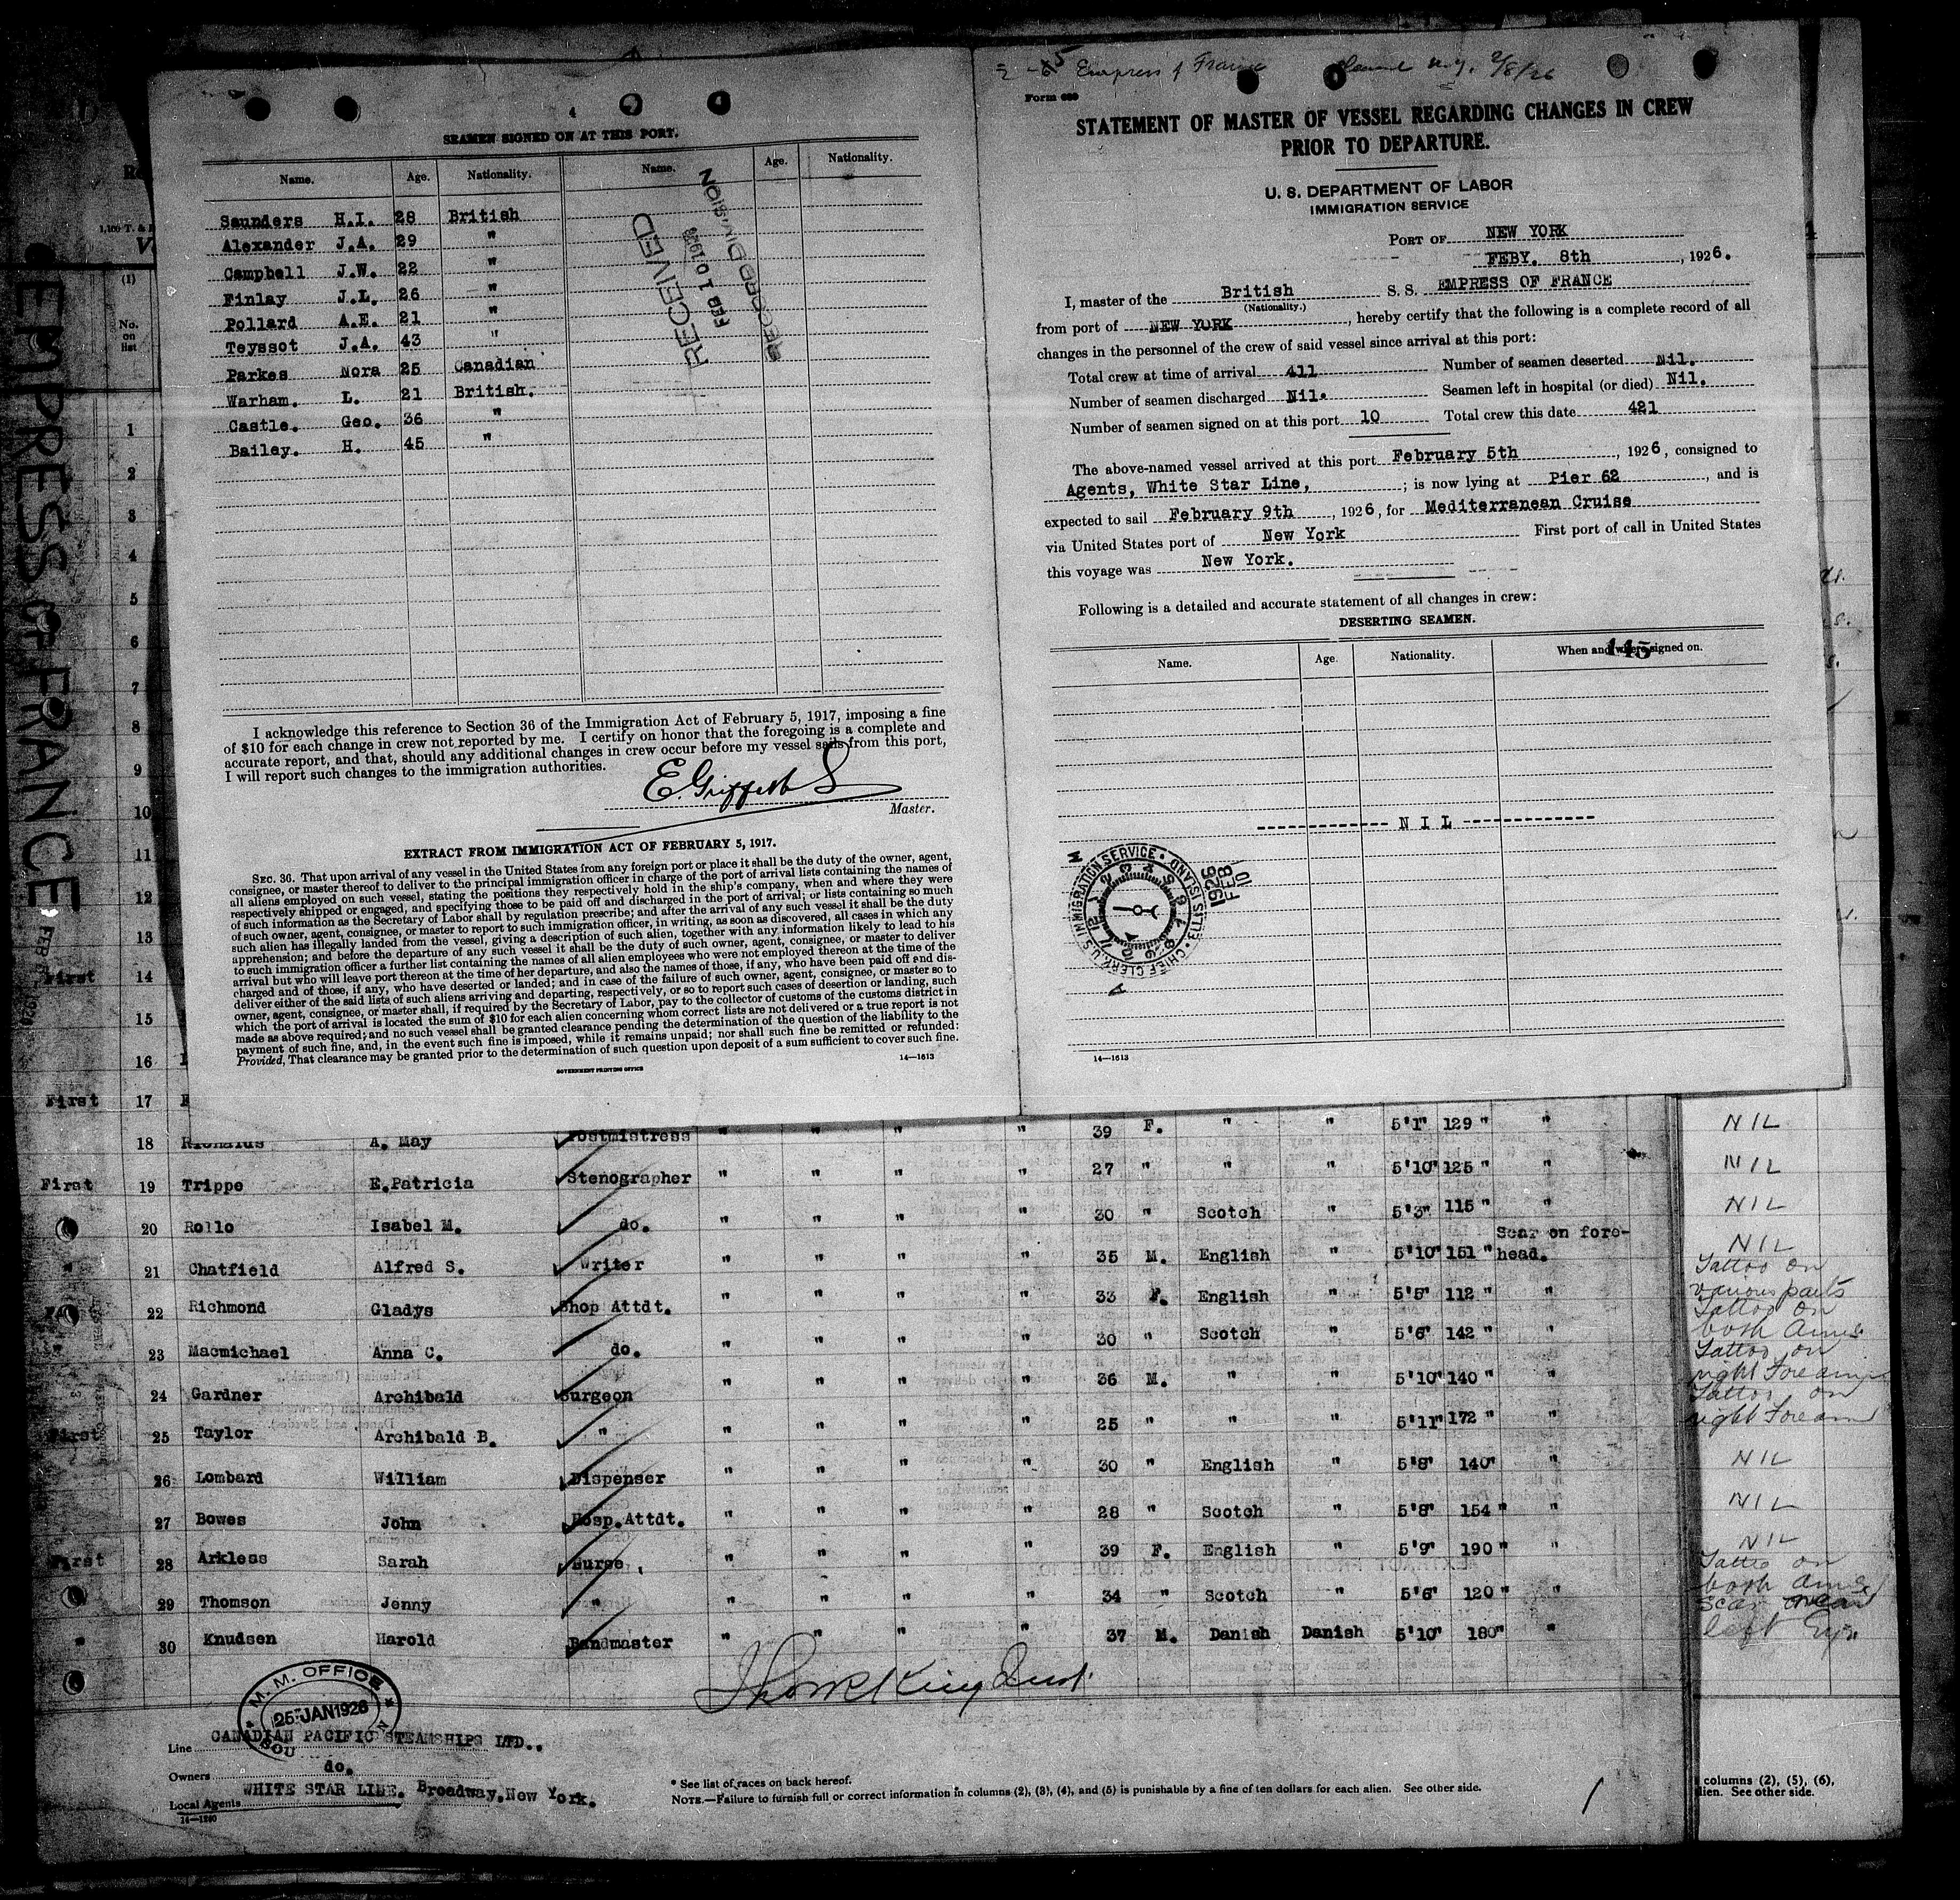 EMPRESS OF FRANCE
4
SEAMEN SIGNED ON AT THIS PORT.
Name. Age. Nationality. Name. Age. Nationality.
Saunders H.I. 28 British
Alexander J.A. 29 "
Campbell J.W. 22 "
Finlay J.L. 26 "
Pollard A.E. 21 "
Teyssot J.A. 43 "
Parkes Nora 25 Canadian
Warham. L. 21 British.
Castle. Geo. 36 "
Bailey. H. 45 "
RECEIVED
FEB 10 1926
RECORD DIVISION
I acknowledge this reference to Section 36 of the Immigration Act of February 5, 1917, imposing a fine
of $10 for each change in crew not reported by me. I certify on honor that the foregoing is a complete and
accurate report, and that, should any additional changes in crew occur before my vessel sails from this port,
I will report such changes to the immigration authorities.
E. Griffiths
Master.
EXTRACT FROM IMMIGRATION ACT OF FEBRUARY 5, 1917.
SEC. 36. That upon arrival of any vessel in the United States from any foreign port or place it shall be the duty of the owner, agent,
consignee, or master thereof to deliver to the principal immigration officer in charge of the port of arrival lists containing the names of
all aliens employed on such vessel, stating the positions they respectively hold in the ship's company, when and where they were
respectively shipped or engaged, and specifying those to be paid off and discharged in the port of arrival; or lists containing so much
of such information as the Secretary of Labor shall by regulation prescribe; and after the arrival of any such vessel it shall be the duty
of such owner, agent, consignee, or master to report to such immigration officer, in writing, as soon as discovered, all cases in which any
such alien has illegally landed from the vessel, giving a description of such alien, together with any information likely to lead to his
apprehension; and before the departure of any such vessel it shall be the duty of such owner, agent, consignee, or master to deliver
to such immigration officer a further list containing the names of all alien employees who were not employed thereon at the time of the
arrival but who will leave port thereon at the time of her departure, and also the names of those, if any, who have been paid off and dis-
charged and of those, if any, who have deserted or landed; and in case of the failure of such owner, agent, consignee, or master so to
deliver either of the said lists of such aliens arriving and departing, respectively, or so to report such cases of desertion or landing, such
owner, agent, consignee, or master shall, if required by the Secretary of Labor, pay to the collector of customs of the customs district in
which the port of arrival is located the sum of $10 for each alien concerning whom correct lists are not delivered or a true report is not
made as above required; and no such vessel shall be granted clearance pending the determination of the question of the liability to the
payment of such fine, and, in the event such fine is imposed, while it remains unpaid; nor shall such fine be remitted or refunded:
Provided, That clearance may be granted prior to the determination of such question upon deposit of a sum sufficient to cover such fine.
14—1613
GOVERNMENT PRINTING OFFICE
Empress of France N.Y. 2/8/26
Form 689
STATEMENT OF MASTER OF VESSEL REGARDING CHANGES IN CREW
PRIOR TO DEPARTURE.
U. S. DEPARTMENT OF LABOR
IMMIGRATION SERVICE
PORT OF NEW YORK
FEBY. 8th, 1926.
I, master of the British S. S. EMPRESS OF FRANCE
(Nationality.)
from port of NEW YORK, hereby certify that the following is a complete record of all
changes in the personnel of the crew of said vessel since arrival at this port:
Total crew at time of arrival 411 Number of seamen deserted Nil.
Number of seamen discharged Nil. Seamen left in hospital (or died) Nil.
Number of seamen signed on at this port 10 Total crew this date 421
The above-named vessel arrived at this port February 5th, 1926, consigned to
Agents, White Star Line, ; is now lying at Pier 62, and is
expected to sail February 9th, 1926, for Mediterranean Cruise
via United States port of New York First port of call in United States
this voyage was New York.
Following is a detailed and accurate statement of all changes in crew:
DESERTING SEAMEN.
145
Name. Age. Nationality. When and where signed on.
NIL
U.S. IMMIGRATION SERVICE • ELLIS ISLAND • CHIEF CLERK
1926 FEB 10
14—1613
(1)
No. on list
1
2
3
4
5
6
7
8
9
10
11
12
13
First 14
15
16
First 17
18 Richards A. May Postmistress " " " " 39 F. " " 5'1" 129 " " NIL
First 19 Trippe E.Patricia Stenographer " " " " 27 " " " 5'10" 125 " " NIL
20 Rollo Isabel M. do. " " " " 30 " Scotch " 5'3" 115 " " NIL
" 21 Chatfield Alfred S. Writer " " " " 35 M. English " 5'10" 151 " Scar on fore-head. NIL
22 Richmond Gladys Shop Attdt. " " " " 33 F. English " 5'5" 112 " "
" 23 Macmichael Anna C. do. " " " " 30 " Scotch " 5'6" 142 " "
24 Gardner Archibald Surgeon " " " " 36 M. " " 5'10" 140 " "
First 25 Taylor Archibald B. " " " " " 25 " " " 5'11" 172 " "
26 Lombard William Dispenser " " " " 30 " English " 5'8" 140" " NIL
27 Bowes John Hosp.Attdt. " " " " 28 " Scotch " 5'8" 154 " " NIL
First 28 Arkless Sarah Nurse. " " " " 39 F. English " 5'9" 190 " " NIL
29 Thomson Jenny " " " " " 34 " Scotch " 5'6" 120 " "
" 30 Knudsen Harold Bandmaster " " " " 37 M. Danish Danish 5'10" 180" "
Tattoo on
various parts
Tattoo on
both Arms
Tattoo on
right Forearm
Tattoo on
right Forearm
Tattoo on
both Arms
Scar near
left Eye
M. M. OFFICE
25 JAN 1926
SOU
Line CANADIAN PACIFIC STEAMSHIPS LTD..
Owners do.
Local Agents WHITE STAR LINE. Broadway, New York.
14—1240
* See list of races on back hereof.
NOTE.—Failure to furnish full or correct information in columns (2), (3), (4), and (5) is punishable by a fine of ten dollars for each alien. See other side.
columns (2), (5), (6),
lien. See other side.